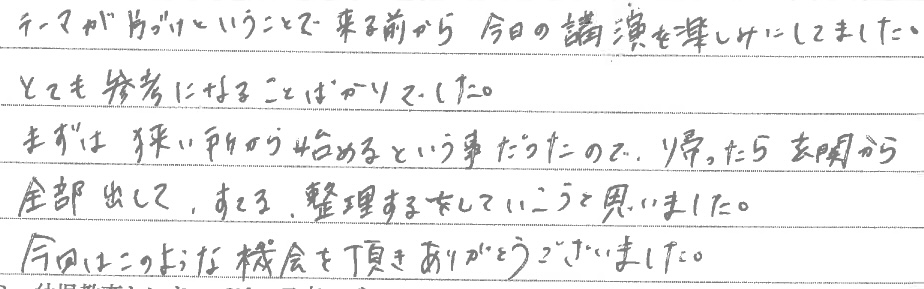 テーマが片づけということで来る前から 今日の講演を楽しみにしてました。
とても参考になることばかりでした。
まずは狭い所から始めるという事だったので、帰ったら玄関から
全部出して、すてる、整理するをしていこうと思いました。
今回はこのような機会を頂きありがとうございました。